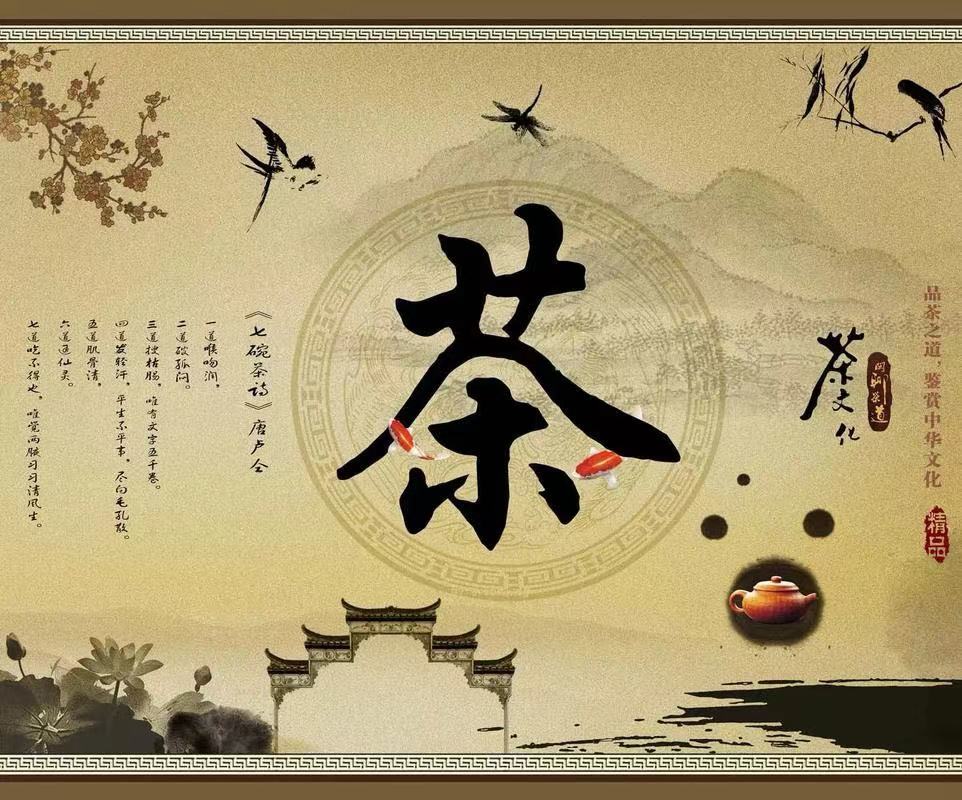 品茶之道,鉴赏中华文化
精品
茶文化
闲聊茶道
茶
《七碗茶诗》唐卢仝
一道喉吻润,
二道破孤闷。
三道搜枯肠,唯有文字五千卷。
四道发轻汗,平生不平事,尽向毛孔散。
五道肌骨清,
六道通仙灵。
七道吃不得也,唯觉两腋习习清风生。